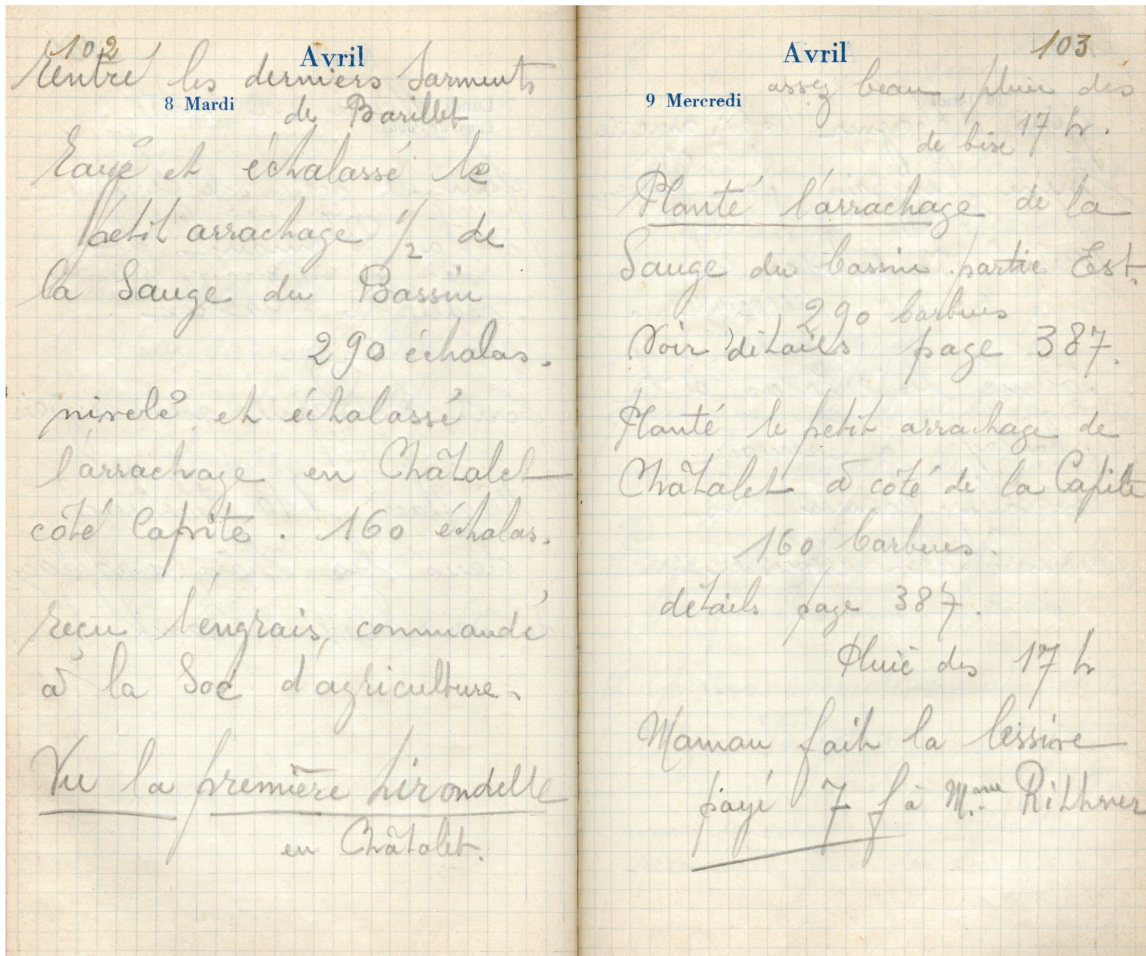 102
Avril
rentré les derniers Sarments
8 Mardi
de Barillet
et échalassé le
petit arrachage 1/2 de
la Sauge du Bassin
290 échalas.
nivelé et échalassé
l'arrachage en Châtalet
côté Capite. 160 échalas.
reçu l'engrais, commandé
à la Soc d'agriculture.
Vu la première hirondelle
en Châtalet.
Avril
103
9 Mercredi
assez beau, pluie dès
de bise 17 h.
Planté l'arrachage de la
Sauge du bassin partie Est.
290 barbues
Voir détails page 387.
Planté le petit arrachage de
Châtalet à côté de la Capite
160 barbues.
détails page 387.
Pluie dès 17 h
Maman fait la lessive
payé 7 f à Mme Rithner